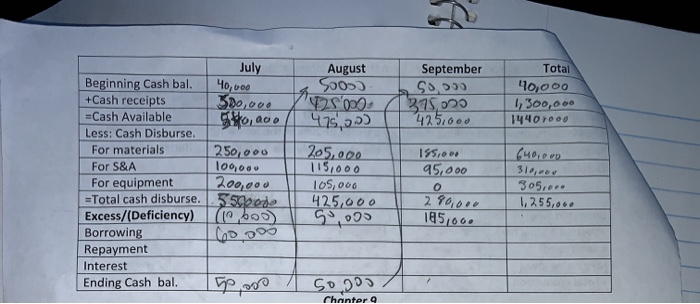 July August September Total
Beginning Cash bal. 40,000 50000 50,000 40,000
+Cash receipts 500,000 425,000 375,000 1,300,000
=Cash Available 475,000 425,000
Less: Cash Disburse.
For materials 250,000 205,000 185,000 640,000
For S&A 100,000 115,000 95,000 310,000
For equipment 200,000 105,000 0 305,000
=Total cash disburse. 425,000 280,000 1,255,000
Excess/(Deficiency) 50,000
Borrowing 60,000
Repayment
Interest
Ending Cash bal. 50,000 50,000
Chapter 9